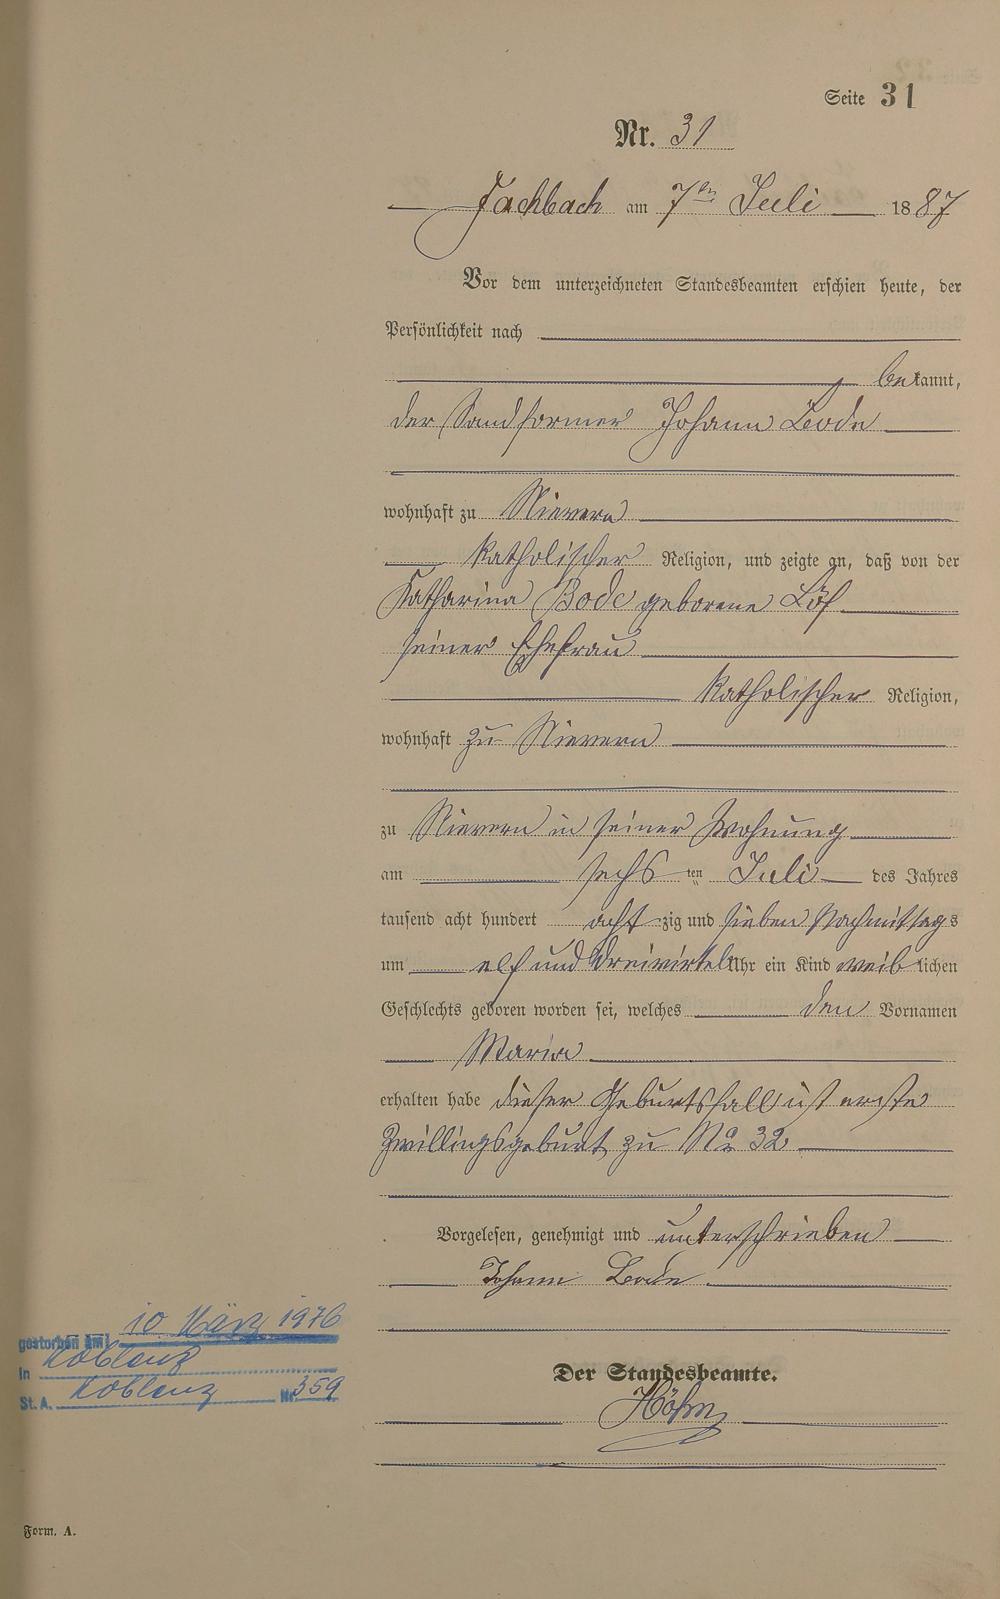 Seite 31
Nr. 31
Fachbach am 7ten Juli 1887
Vor dem unterzeichneten Standesbeamten erschien heute, der
Persönlichkeit nach
bekannt,
der Sandformer Johann Bode
wohnhaft zu Nievern
katholischer Religion, und zeigte an, daß von der
Katharina Bode geborene Löf
seiner Ehefrau
katholischer Religion,
wohnhaft zu Nievern
zu Nievern in seiner Wohnung
am sechsten Juli des Jahres
tausend acht hundert achtzig und sieben Nachmittags
um elf und dreiviertel Uhr ein Kind weiblichen
Geschlechts geboren worden sei, welches den Vornamen
Maria
erhalten habe dieser Geburtsfall ist erste
Zwillingsgeburt zu No 32
Vorgelesen, genehmigt und unterschrieben
Johann Bode
gestorben am 10 März 1976
in Koblenz
St. A. Koblenz Nr. 359
Der Standesbeamte.
Höhn
Form. A.